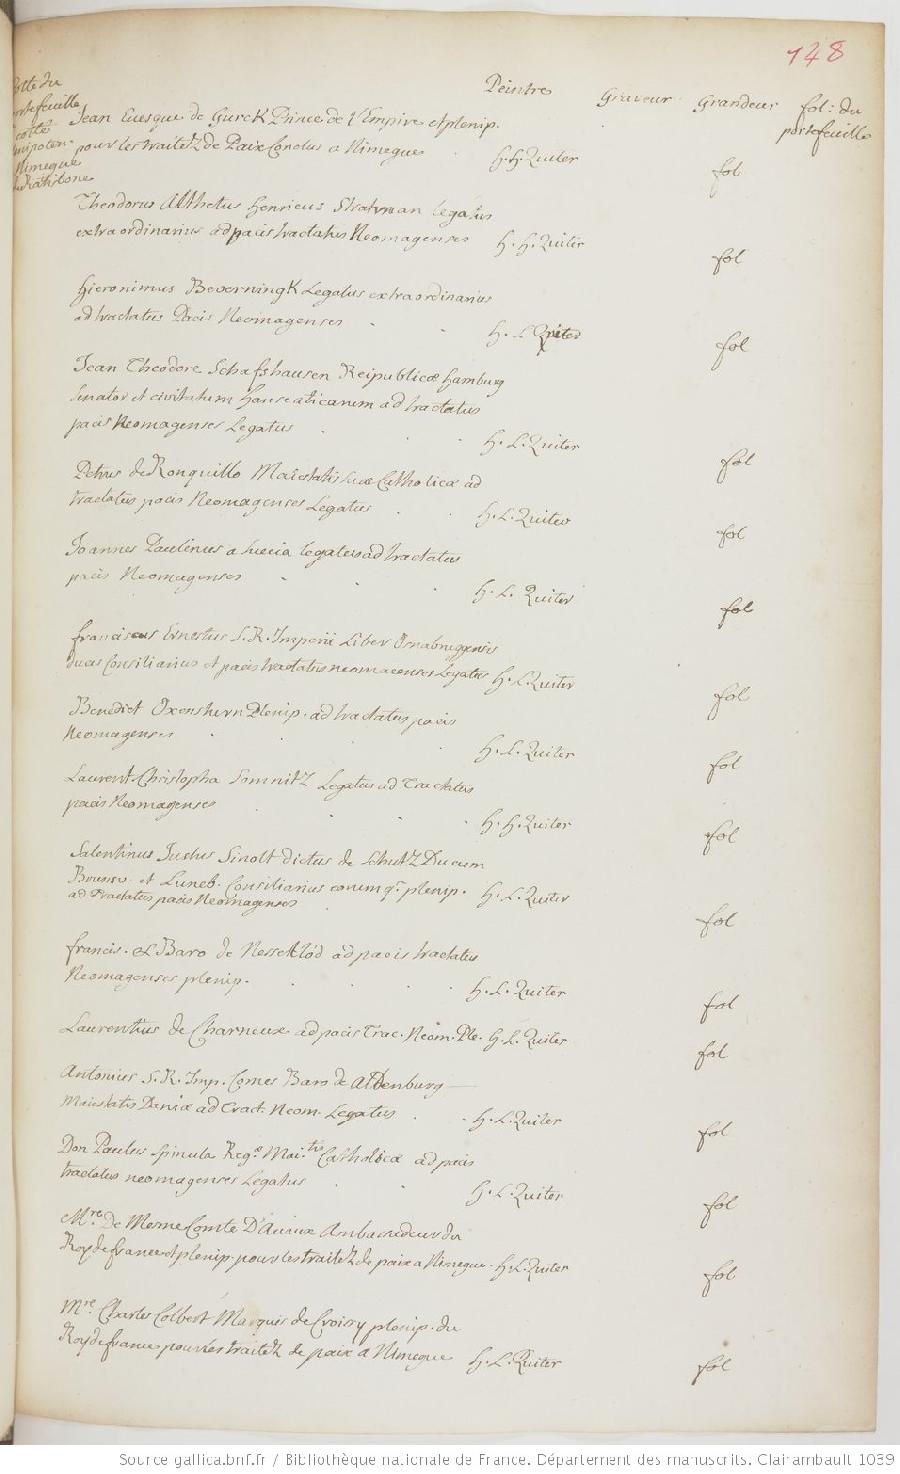 148
Peintre Graveur Grandeur fol: du portefeuille
Cotte du
portefeuille
cotté
Nimegue
Jean Euesque de Gurck Prince de l'Empire et plenip.
pour les traitetz de Paix Conclus a Nimegue . H. H. Quiter fol
Theodorus Althetus Henricus Stratman legatus
extraordinarius ad pacis tractatus Neomagenses H. H. Quiter fol
Hieronimus Beverningk Legatus extraordinarius
ad tractatus Pacis Neomagenses . . H. L. Quiter fol
Jean Theodore Schafshausen Reipublicæ hamburg
Senator et civitatum hanseaticarum ad tractatus
pacis Neomagenses Legatus . . H. L. Quiter fol
Petrus de Ronquillo Maiestatis suæ Catholicæ ad
tractatus pacis Neomagenses Legatus . . H. L. Quiter fol
Joannes Paulinus legatus ad tractatus
pacis Neomagenses . . . H. L. Quiter fol
franciscus Ernestus S. R. Imperii Liber Osnabruggensis
ducis Consiliarius et pacis tractatus neomacenses Legatus H. L. Quiter fol
Benedict Oxenshern Plenip. ad tractatus pacis
Neomagenses . . . H. L. Quiter fol
Laurent Christopha Somnitz Legatus ad Tractatus
pacis Neomagenses . . . . H. H. Quiter fol
Salentinus Justus Sinolt dictus de Schutz Ducum
Brunsv. et Luneb. Consiliarius eorumq. plenip. H. L. Quiter
ad Tractatus pacis Neomagenses . fol
francis. Baro de ad pacis tractatus
Neomagenses plenip. . . . H. L. Quiter fol
Laurentius de Charneux ad pacis Trac. Neom. Ple. H. L. Quiter fol
Antonius S. R. Imp. Comes Baro de Aldenburg
Maiestatis Daniæ ad Tract. Neom. Legatus . . H. L. Quiter fol
Don Paulus Spinula Reg. Mai.tis Catholicæ ad pacis
tractatus neomagenses Legatus . . H. L. Quiter fol
Mre. De Mesme Comte D'Auaux Ambassadeur du
Roy de france et plenip. pour les traitetz de paix a Nimegue. H. L. Quiter fol
Mre. Charles Colbert Marquis de Croissy plenip. du
Roy de france pour les traitetz de paix a Nimegue H. L. Quiter fol
Source gallica.bnf.fr / Bibliothèque nationale de France. Département des manuscrits. Clairambault 1039